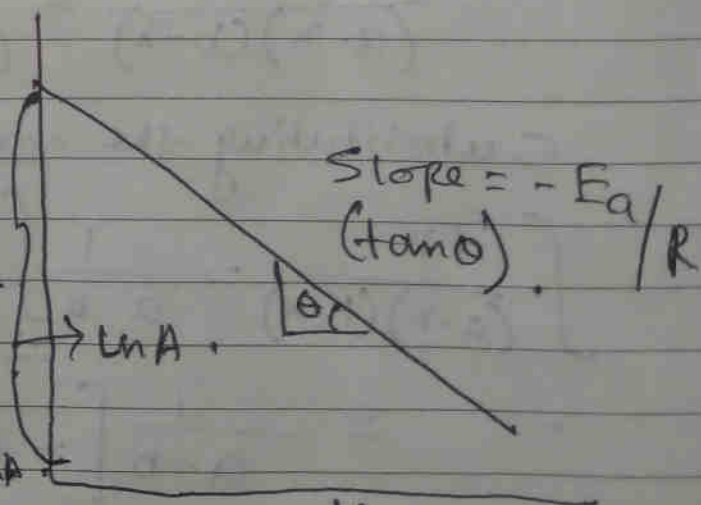 Slope = - Ea/R
(tanθ).
θ
→ lnA.